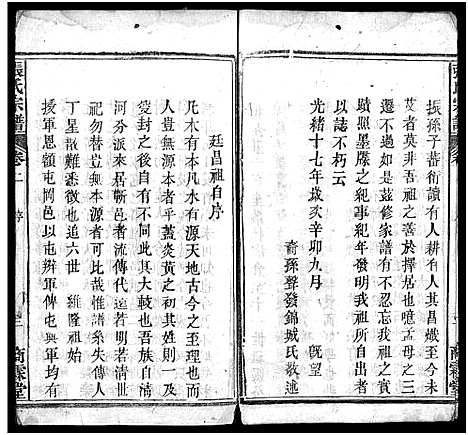 振孫子蕃衍讀有人耕有人其昌熾至今未
艾者莫非吾祖之善於擇居也噫孟母之三
遷不過如是茲修家譜有不忍湮我祖之事
蹟照墨牒之紀事紀年發明我祖所自出者
以誌不朽云
光緒十七年歲次辛卯九月 既望
裔孫聲發錦城氏敬述
廷昌祖自序
凡木有本凡水有源天地古今之至理也而
人豈無源本者乎蓋炎黃之初其姓則一及
夏封之後其姓乃分此其大較也吾族自清
河分派來居蘄邑者流傳代遠若明若清世
祀勿替豈無本源者可比哉惟譜系失傳人
丁星散難悉也追六世 維隆祖始
援軍恩領屯岡邑以屯辨軍俾屯與軍均有
張氏宗譜 卷二
商霖堂